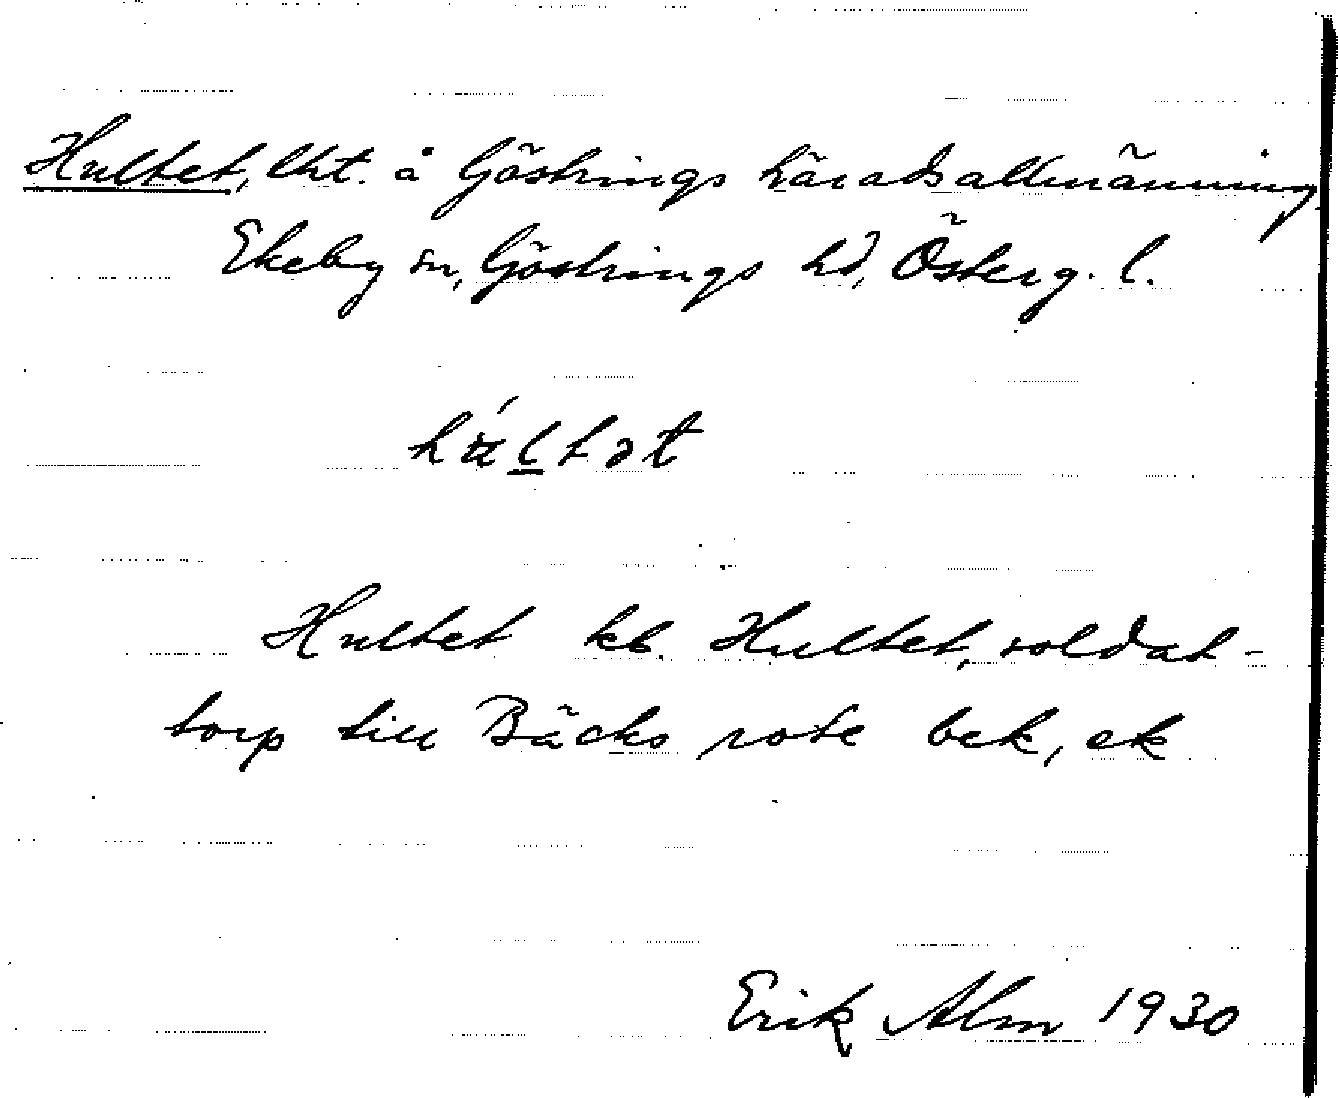 Hultet, lht. å Göstrings häradsallmänning
Ekeby sn, Göstrings hd, Österg. l.
Hultet kb. Hultet, soldat-
torp till Bäcks rote bek, ek
Erik Alm 1930